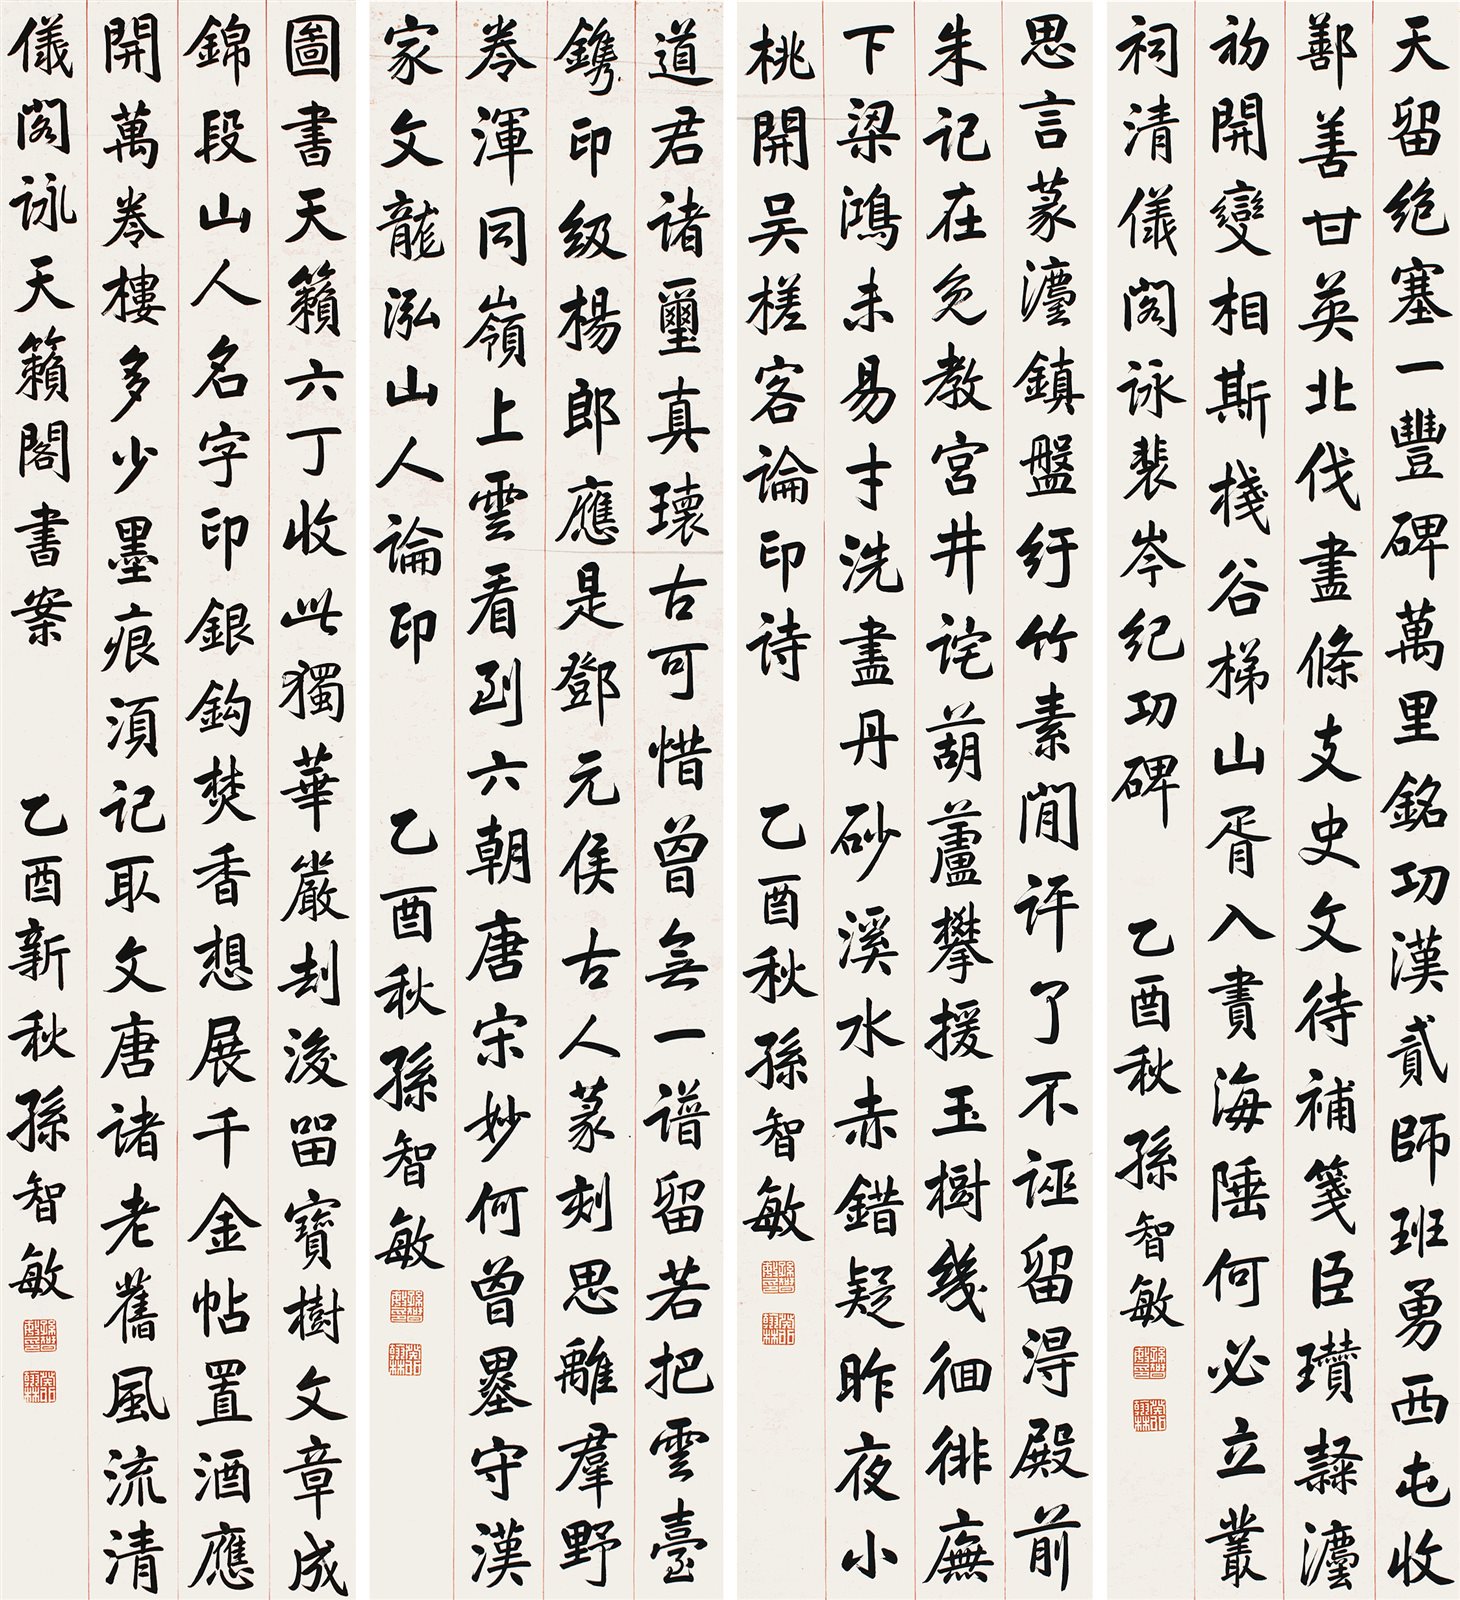 天留绝塞一豐碑萬里銘功漢貳師班勇西屯收
鄯善甘英北伐盡條支史文待補箋臣瓚隸灋
初開變相斯棧谷梯山胥入責海陲何必立叢
祠清儀閣詠裴岑纪功碑 乙酉秋孫智敏
思言篆灋鎮盤紆竹素閒評了不誣留淂殿前
朱记在免教宮井詫葫蘆攀援玉樹幾徊徘廡
下梁鴻未易才洗盡丹砂溪水赤錯疑昨夜小
桃開吴槎客論印诗 乙酉秋孫智敏
道君诸璽真瓌古可惜曾無一谱留若把雲臺
鐫印级楊郎應是鄧元侯古人篆刻思離羣野
岺渾同嶺上雲看到六朝唐宋妙何曾墨守漢
家文龍泓山人論印 乙酉秋孫智敏
圖書天籟六丁收此獨華嚴刦後留寶樹文章成
錦段山人名字印銀鈎焚香想展千金帖置酒應
開萬卷樓多少墨痕湏记取文唐诸老舊風流清
儀閣詠天籟閣書案 乙酉新秋孫智敏